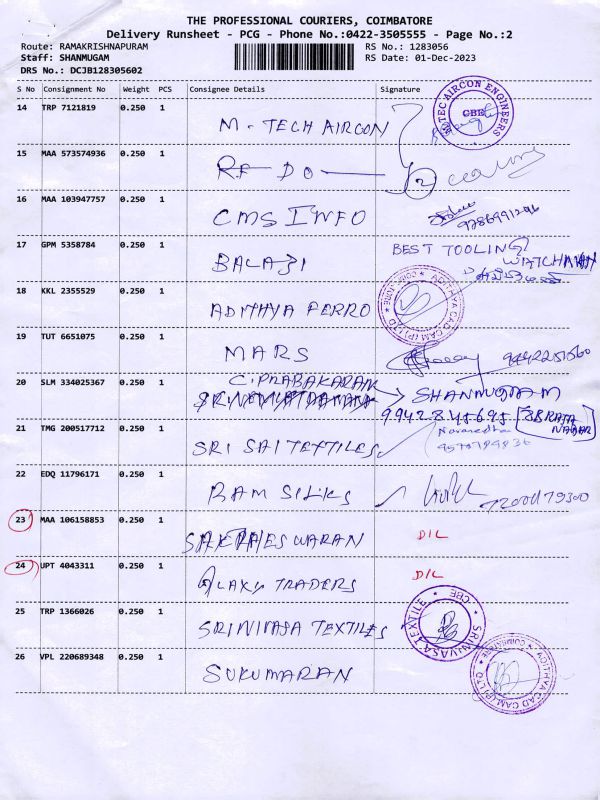 THE PROFESSIONAL COURIERS, COIMBATORE
Delivery Runsheet - PCG - Phone No.:0422-3505555 - Page No.:2
Route: RAMAKRISHNAPURAM RS No.: 1283056
Staff: SHANMUGAM RS Date: 01-Dec-2023
DRS No.: DCJB128305602
S No Consignment No Weight PCS Consignee Details Signature
14 TRP 7121819 0.250 1 M-TECH AIRCON M-TEC AIRCON ENGINEERS CBE
15 MAA 573574936 0.250 1 RF-DO 2
16 MAA 103947757 0.250 1 CMS INFO
17 GPM 5358784 0.250 1 BALAJI BEST TOOLING
WATCHMAN
18 KKL 2355529 0.250 1 ADITHYA FERRO ADITHYA CAD CAM (P) LTD
19 TUT 6651075 0.250 1 MARS
20 SLM 334025367 0.250 1 C. PRABAKARAN SHANMUGAM
9942845695
21 TMG 200517712 0.250 1 SRI SAI TEXTILES
22 EDQ 11796171 0.250 1 RAM SILKS
23 MAA 106158853 0.250 1 D/L
24 UPT 4043311 0.250 1 ALAXY TRADERS D/L
25 TRP 1366026 0.250 1 SRINIVASA TEXTILES SRINIVASA TEXTILE CBE
26 VPL 220689348 0.250 1 SUKUMARAN ADITHYA CAD CAM (P) LTD